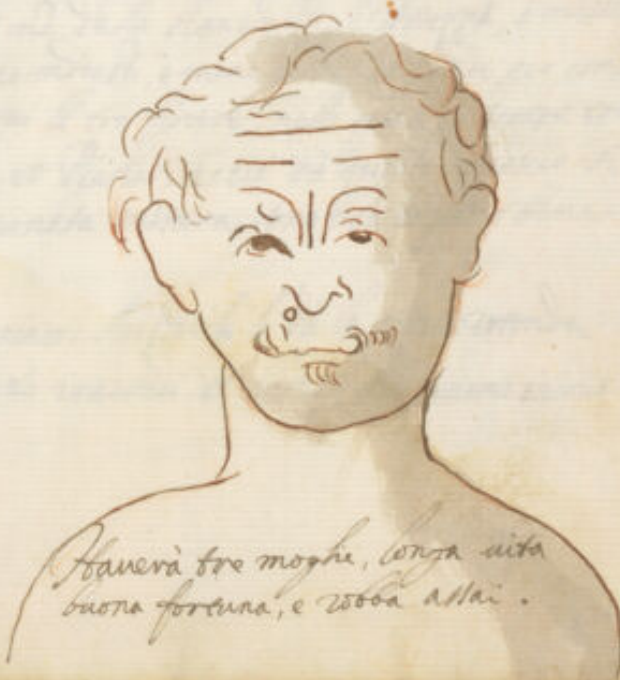 Haverà tre moglie, longa vita
buona fortuna, e robba assai.